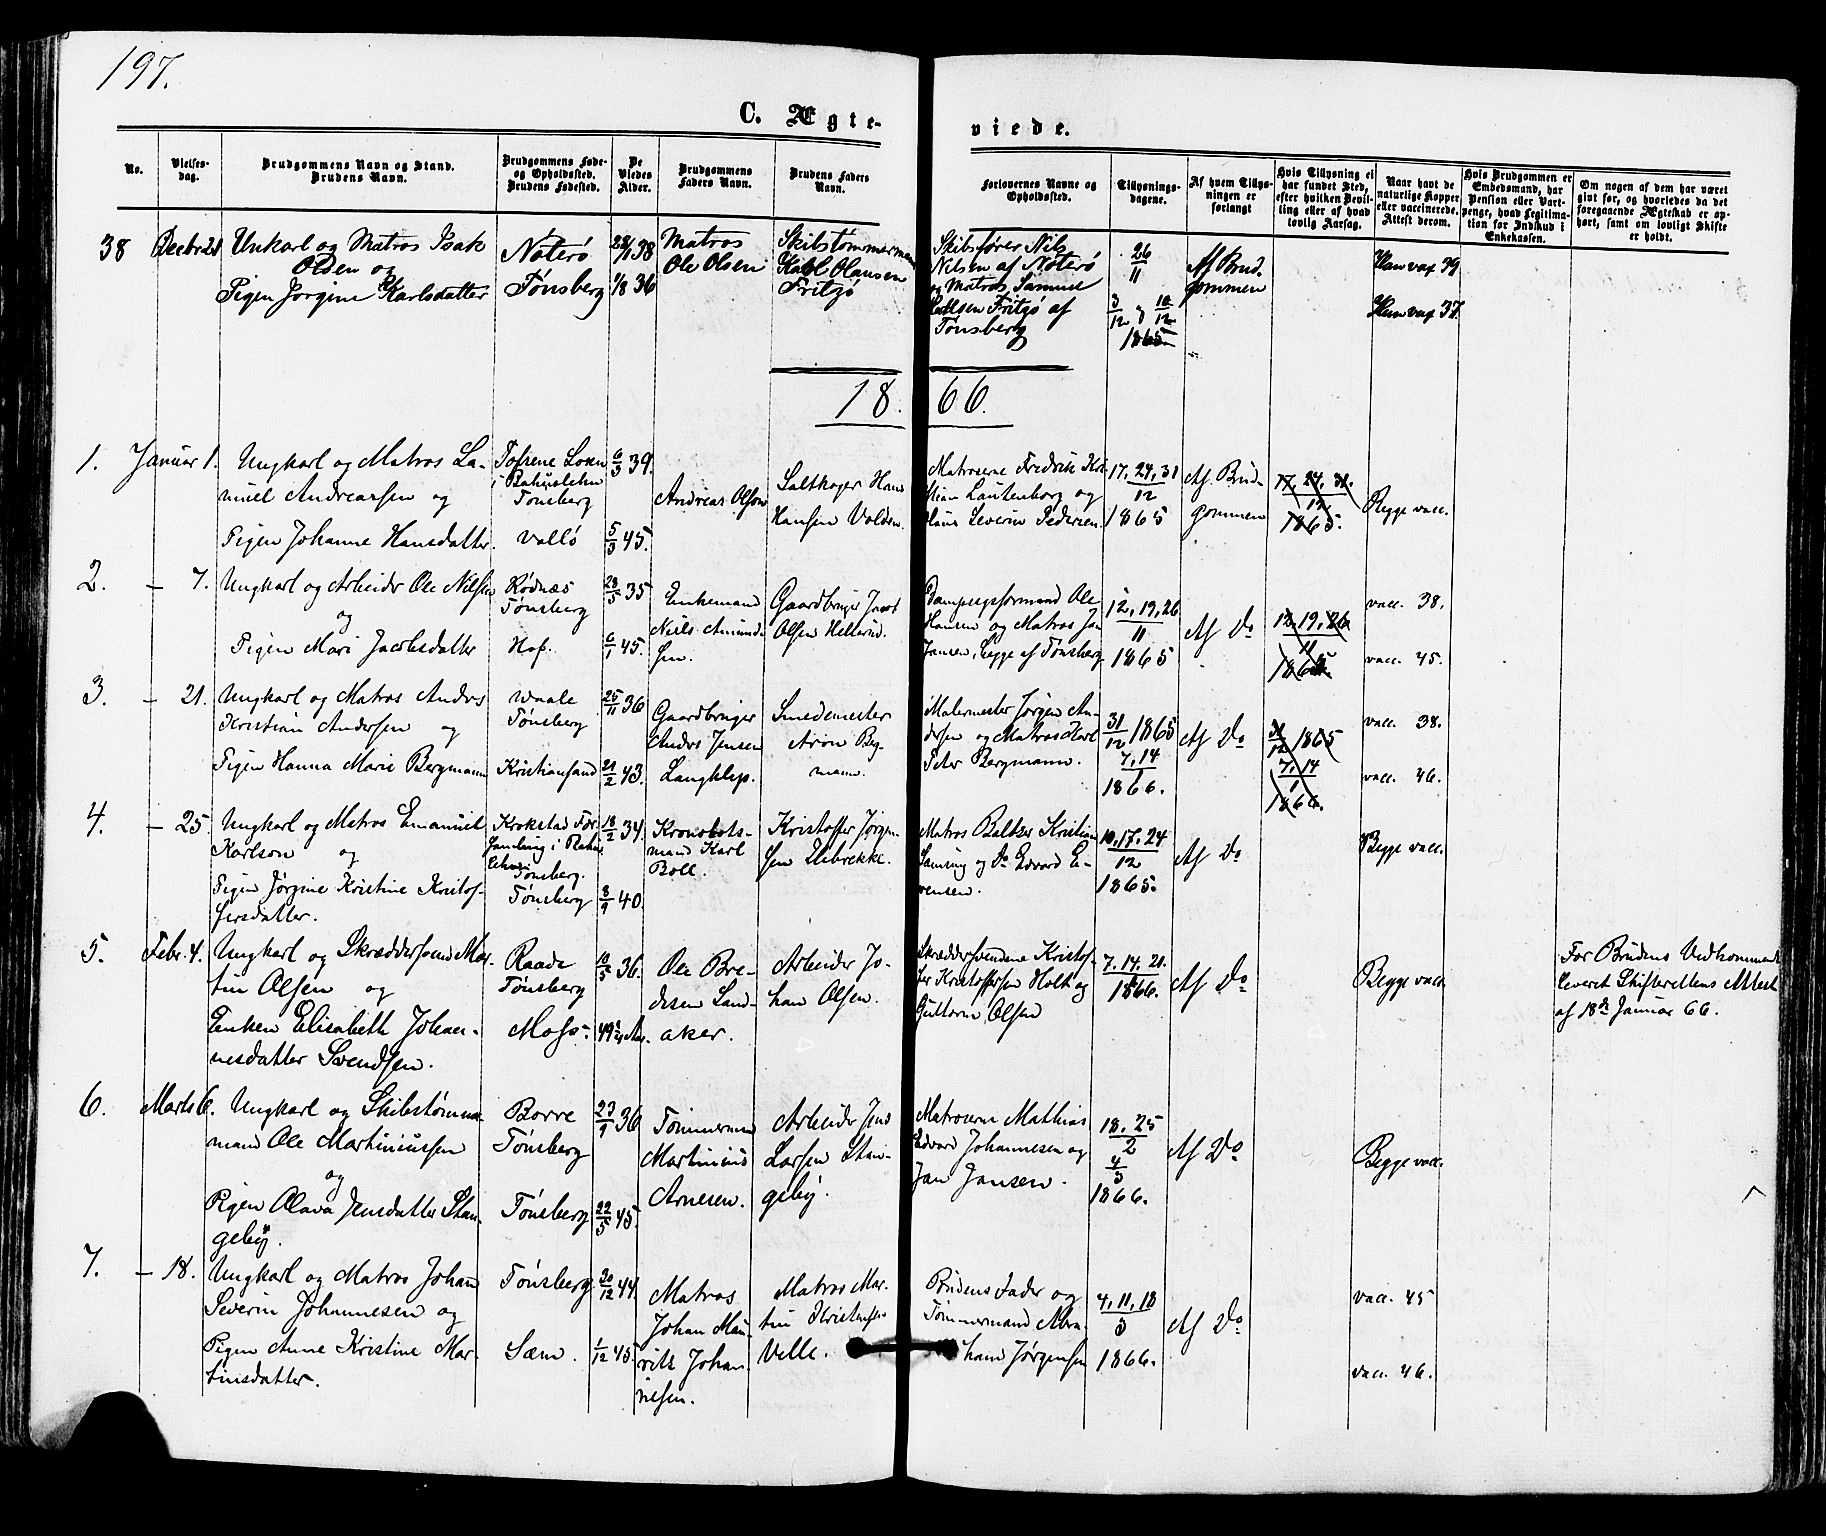 197.
C. Ægte-
viede.
No.
Vielses-
dag.
Brudgommens Navn og Stand.
Brudens Navn.
Brudgommens Føde-
og Opholdssted.
Brudens Fødested.
De
Viedes
Alder.
Brudgommens
Faders Navn.
Brudens Faders
Navn.
Forlovernes Navne og
Opholdssted.
Tillysnings-
dagene.
Af hvem Tillys-
ningen er
forlangt
Hvis Tillysning ei
har fundet Sted,
efter hvilken Bevil-
ling eller af hvad
lovlig Aarsag.
Naar havt de
naturlige Kopper
eller vaccinerede.
Attest derom.
Hvis Brudgommen er
Embedsmand, har
Pension eller Vart-
penge, hvad Legitima-
tion for Indskud i
Enkekassen.
Om nogen af dem har været
gift før, og hvorledes da det
foregaaende Ægteskab er op-
hørt, samt om lovligt Skifte
er holdt.
38 Decbr 21 Unkarl og Matros Isak
Olsen og
Pigen Jorgine Karlsdatter
Nøterø
Tønsberg
28/1 38
1/8 36
Matros
Ole Olsen
Skibstømmermand
Karl Olausen
Fritzø
Skibsfører Nils
Nilsen af Nøterø
og Matros Samuel
Fritzø af
Tønsberg
26/11
3/12 og 10/12
1865
Af Brud-
gommen
Han vax 39
Hun vax 37
18 66.
1. Januar 1. Ungkarl og Matros La-
muel Andreassen og
Pigen Johanne Hansdatter.
Tossene Sokn
i Bahuslehn
Tønsberg
Vallö
6/3 39.
5/3 45.
Andreas Olsen
Saltkoger Hans
Hansen Volden.
Matroserne Fredrik Kri-
stian Lautenborg og
Hans Severin Pedersen.
17, 24, 31/12
1865
Af Brud-
gommen
17, 24, 31./12
1865.
Begge vacc.
2. — 7. Ungkarl og Arbeider Ole Nilsen
og
Pigen Mari Jacobsdatter
Rødnæs
Tønsberg
Hof.
28/5 35
6/1 45.
Enkemand
Niels Amund-
sen.
Gaardbruger Jacob
Olsen Hellerud.
Dampsagsformand Ole
Hansen og Matros Jan
Jansen, begge af Tønsberg
12, 19, 26/11
1865
Af Do
12, 19, 26/11
1865
vacc. 38.
vacc. 45.
3. — 21. Ungkarl og Matros Andrs
Kristian Andersen og
Pigen Hanna Marie Bergmann
Waale
Tønsberg
Kristiansand
25/11 36
21/2 43.
Gaardbruger
Andrs Jensen
Langklep.
Smedemester
Aron Berg-
mann.
Malermester Jørgen An-
dersen og Matros Karl
Peter Bergmann.
31/12 1865
7, 14/1
1866.
Af Do
31/12 1865
7, 14/1
1866.
vacc. 38.
vacc. 46.
4. — 25. Ungkarl og Matros Emanuel
Karlson og
Pigen Jørgine Kristine Kristof-
fersdatter.
Krokstad For-
samling i Bahus
Lehn
Tønsberg.
Tønsberg
18/2 34.
8/9 40.
Kronobots-
mand Karl
Boll.
Kristoffer Jørgen-
sen Ilebrekke.
Matros Baltzer Kristian
Lansing og Do Edvard E-
vensen.
10, 17, 24/12
1865.
Af Do
Begge vacc.
5. Febr. 4. Ungkarl og Skræddersvend Mar-
tin Olsen og
Enken Elisabeth Johan-
nesdatter Svendsen.
Raade
Tønsberg
Moss.
10/5 36.
49
Ole Bre-
desen Land-
aker.
Arbeider Jo-
han Olsen.
Skræddersvendene Kristof-
fer Kristoffersen Holt og
Guttorm Olsen
7, 14, 21./1
1866.
Af Do
Begge vacc.
For Brudens Vedkommende
leveret Skifterettens Attest
af 18de Januar 66.
6. Marts 6. Ungkarl og Skibstømmer-
mand Ole Martiniussen
og
Pigen Olava Jensdatter Stan-
geby.
Borre
Tønsberg
Tønsberg
23/9 36
22/5 45.
Tømmermand
Martinius
Arnesen.
Arbeider Jens
Larsen Stan-
geby.
Matroserne Mathias
Edvard Johannesen og
Jan Jansen.
18, 25/2
4/3
1866.
Af Do
Begge vacc.
7. — 18. Ungkarl og Matros Johan
Severin Johannesen og
Pigen Anne Kristine Mar-
tinsdatter.
Tønsberg
Sæm.
30/12 44.
1/12 45.
Matros
Johan Mau-
ritz Johan-
nesen.
Matros Mar-
tin Kristensen
Velle.
Brudens Fader og
Tømmermand Abra-
ham Jørgensen
4, 11, 18/3
1866.
Af Do
vacc. 45
vacc. 46.